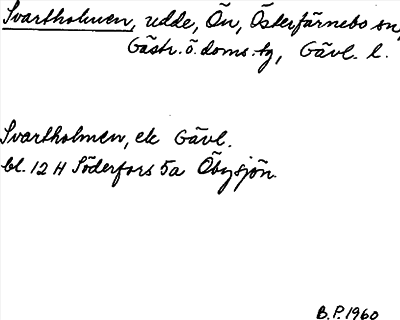 Svartholmen, udde, Ön, Österfärnebo sn,
Gästr. ö. doms. tg, Gävl. l.
Svartholmen, ek Gävl.
bl. 12 H Söderfors 5a Öbysjön
B.P. 1960